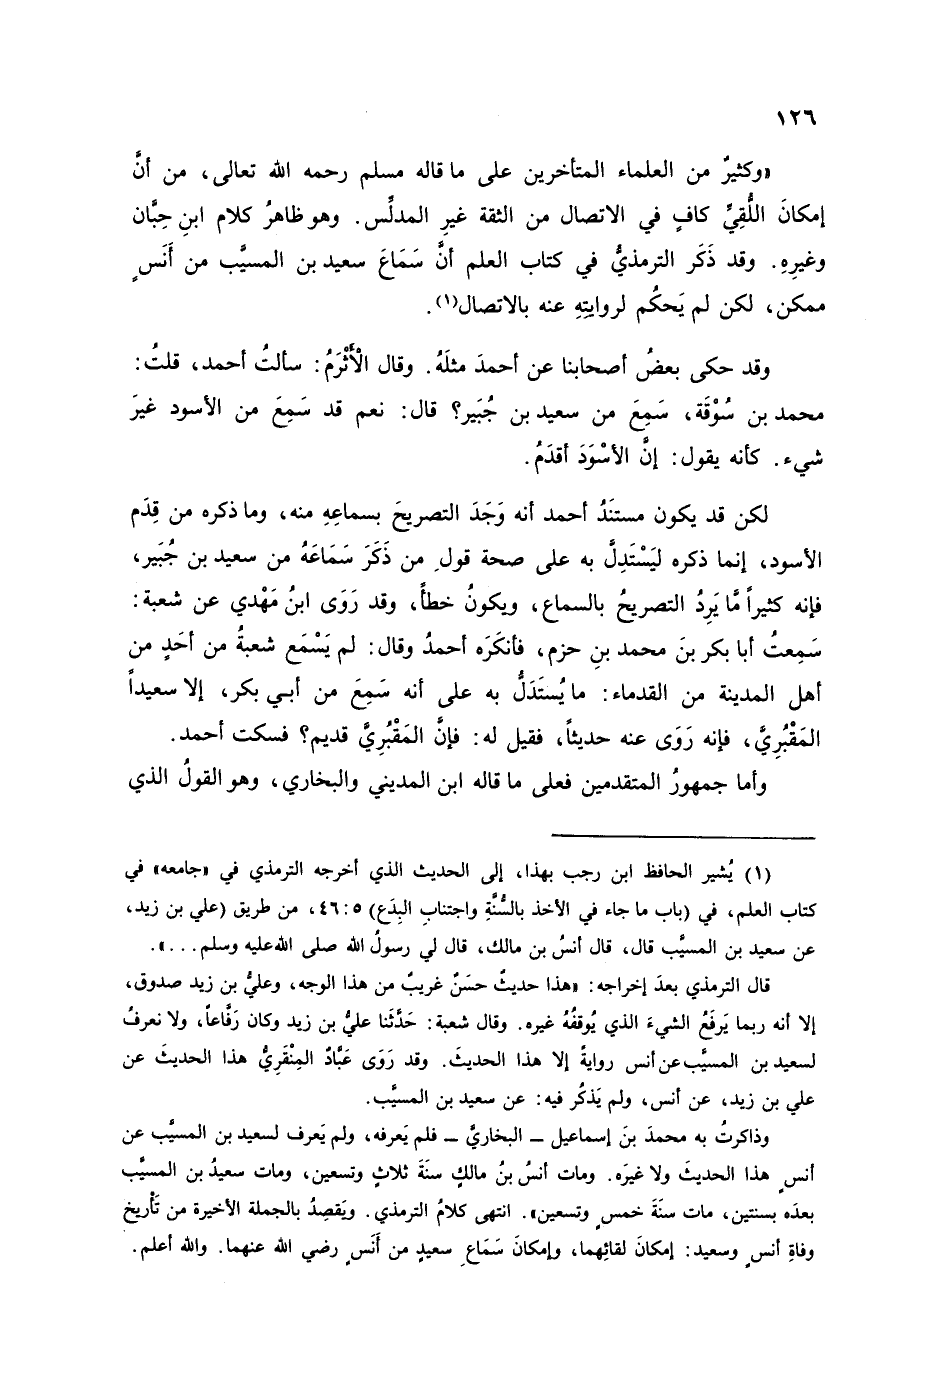 ١٢٦
«وكثيرٌ من العلماء المتأخرين على ما قاله مسلم رحمه الله تعالى، من أنَّ
إمكانَ اللُّقِيِّ كافٍ في الاتصال من الثقة غيرِ المدلِّس. وهو ظاهرُ كلام ابنِ حِبَّان
وغيرِهِ. وقد ذَكَر الترمذيُّ في كتاب العلم أنَّ سَمَاعَ سعيد بن المسيَّب من أَنَسٍ
ممكن، لكن لم يَحكُم لروايتِهِ عنه بالاتصال(١).
وقد حكى بعضُ أصحابنا عن أحمدَ مثلَهُ. وقال الْأَثْرَمُ: سألتُ أحمد، قلتُ:
محمد بن سُوْقَة، سَمِعَ من سعيد بن جُبَير؟ قال: نعم قد سَمِعَ من الأسود غيرَ
شيء. كأنه يقول: إنَّ الأسْوَدَ أقدَمُ.
لكن قد يكون مستنَدُ أحمد أنه وَجَدَ التصريحَ بسماعِهِ منه، وما ذكره من قِدَم
الأسود، إنما ذكره ليَسْتَدِلَّ به على صحة قولِ من ذَكَرَ سَمَاعَهُ من سعيد بن جُبَير،
فإنه كثيراً مَّا يَرِدُ التصريحُ بالسماع، ويكونُ خطأً، وقد رَوَى ابنُ مَهْدي عن شعبة:
سَمِعتُ أبا بكر بنَ محمد بنِ حزم، فأنكَرَه أحمدُ وقال: لم يَسْمَع شعبةُ من أحَدٍ من
أهل المدينة من القدماء: ما يُستَدَلُّ به على أنه سَمِعَ من أبي بكر، إلا سعيداً
المَقْبُرِيَّ، فإنه رَوَى عنه حديثاً، فقيل له: فإنَّ المَقْبُرِيَّ قديم؟ فسكت أحمد.
وأما جمهورُ المتقدمين فعلى ما قاله ابن المديني والبخاري، وهو القولُ الذي
(١) يُشير الحافظ ابن رجب بهذا، إلى الحديث الذي أخرجه الترمذي في «جامعه» في
كتاب العلم، في (باب ما جاء في الأخذ بالسُّنَّةِ واجتنابِ البِدَع) ٤٦:٥، من طريق (علي بن زيد،
عن سعيد بن المسيَّب قال، قال أنسُ بن مالك، قال لي رسولُ الله صلى الله عليه وسلم...».
قال الترمذي بعدَ إخراجه: «هذا حديثٌ حسَنٌ غريبٌ من هذا الوجه، وعليُّ بن زيد صدوق،
إلا أنه ربما يَرفَعُ الشيءَ الذي يُوقفُهُ غيره. وقال شعبة: حَدَّثَنا عليُّ بن زيد وكان رَفَّاعاً، ولا نعرفُ
لسعيد بن المسيَّب عن أنس روايةً إلا هذا الحديثَ. وقد رَوَى عَبَّادٌ المِنْقَرِيُّ هذا الحديثَ عن
علي بن زيد، عن أنس، ولم يَذكُر فيه: عن سعيد بن المسيَّب.
وذاكرتُ به محمدَ بنَ إسماعيل ــ البخاريَّ ــ فلم يَعرفه، ولم يَعرف لسعيد بن المسيَّب عن
أنسٍ هذا الحديثَ ولا غيرَه. ومات أنسُ بنُ مالكٍ سنَةَ ثلاثٍ وتسعين، ومات سعيدُ بن المسيَّب
بعدَه بسنتين، مات سنَةَ خمسٍ وتسعين». انتهى كلامُ الترمذي. ويَقصِدُ بالجملة الأخيرة من تَأريخ
وفاةِ أنسٍ وسعيد: إمكانَ لقائِهما، وإمكانَ سَمَاعِ سعيدٍ من أَنَسٍ رضي الله عنهما. والله أعلم.